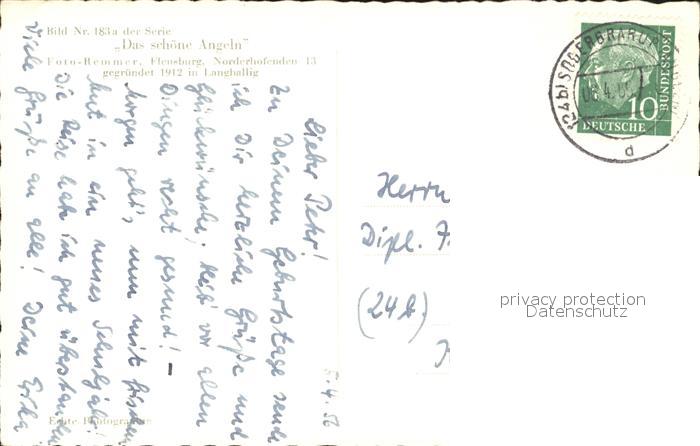 Bild Nr. 183a der Serie
„Das schöne Angeln"
Foto-Remmer, Flensburg, Norderhofenden 13
gegründet 1912 in Langballig
5.4.56
Lieber Peter!
Zu Deinem Geburtstage sende
ich Dir herzliche Grüße und
Glückwünsche, bleib' vor allen
Dingen recht gesund! –
Morgen geht's nun mit frischem
Mut in ein neues Schuljahr!
Die Reise habe ich gut überstanden
Viele Grüße an alle! Deine Erika
Echte Photographie
Herrn
Dipl.
(24b)
DEUTSCHE
BUNDESPOST
10
privacy protection
Datenschutz